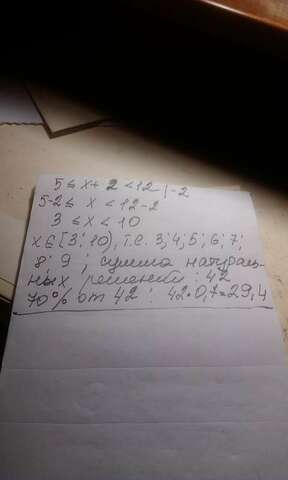 5 ≤ x + 2 < 12 | -2
5-2 ≤ x < 12-2
3 ≤ x < 10
x ∈ [3; 10), т.е. 3; 4; 5; 6; 7;
8; 9; сумма натураль-
ных решений: 42
70% от 42: 42·0,7=29,4